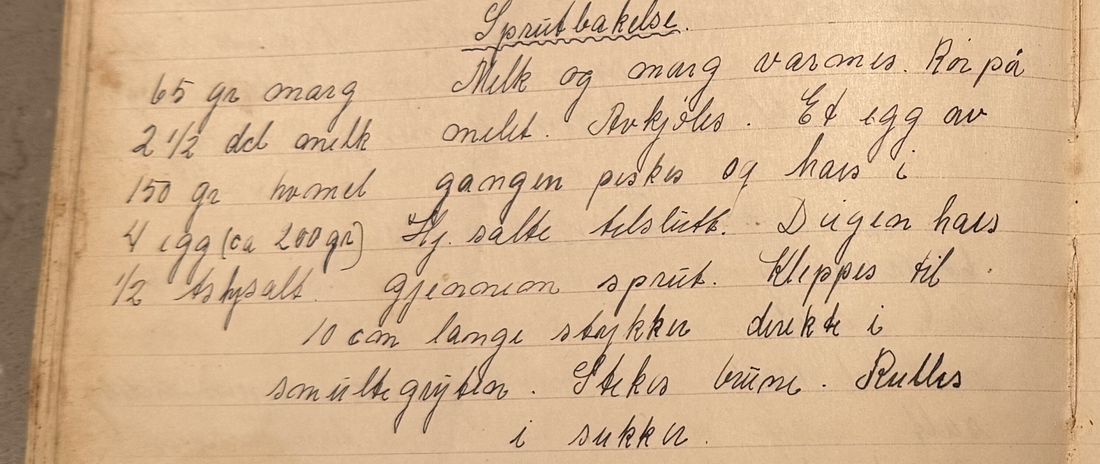 Sprutbakelse.
65 gr marg Melk og marg varmes. Rør på
2 1/2 del melk melet. Avkjøles. Et egg av
150 gr hvmel gangen piskes og haes i
4 egg (ca 200 gr) Hj. salte tilslutt. Deigen haes
1/2 tshjsalt. gjennem sprut. Kleppes til
10 cm lange stykker direkte i
smultegryten. Stekes brune. Rulles
i sukker.